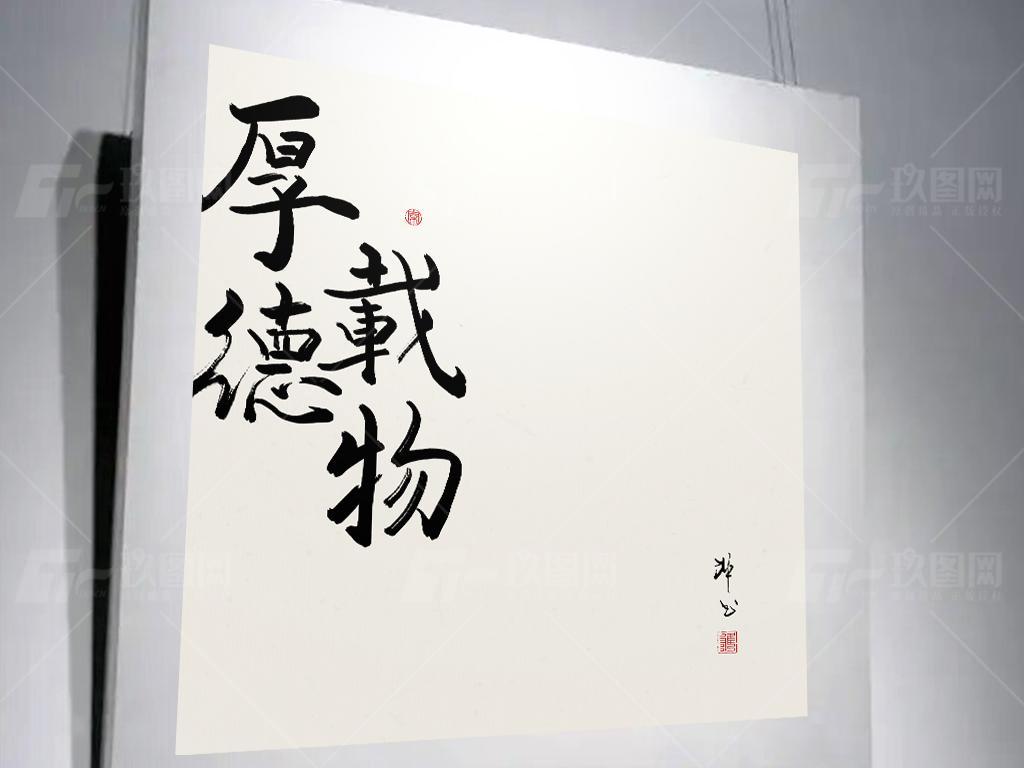 厚德
載物
玖图网
玖图网
玖图网
玖图网
玖图网
玖图网